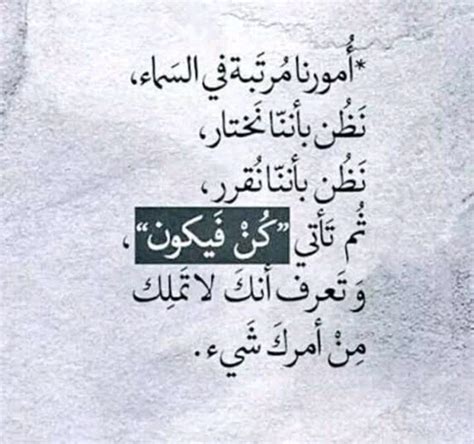 *أُمورنا مُرتَبة في السَماء،
نَظُن بأننّا نَختار،
نَظُن بأننّا نُقرر،
ثُم تَأتي “كُنْ فَيكون“،
وَ تَعرف أنكَ لا تَملِك
مِنْ أمركَ شَيء.